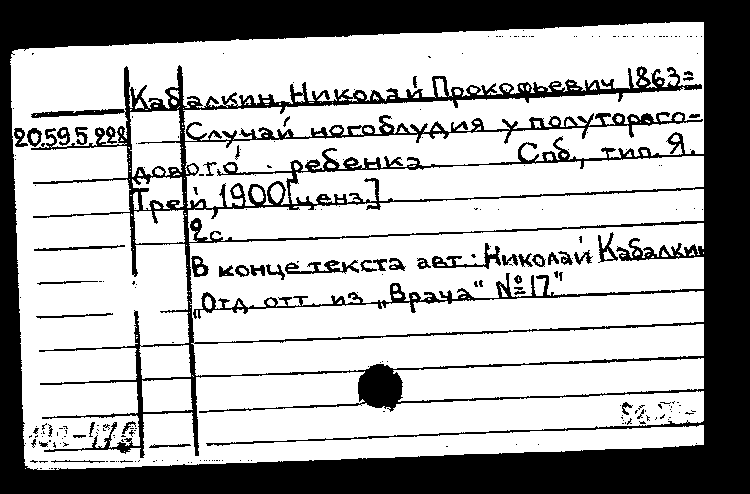 Кабалкин, Николай Прокофьевич, 1863=
20.59.5.228 Случай ногоблудия у полуторaго-
дового ребенка. Спб., тип. Я.
Трей, 1900 [ценз.].
2с.
В конце текста авт.: Николай Кабалкин
„Отд. отт. из „Врача“ №17."